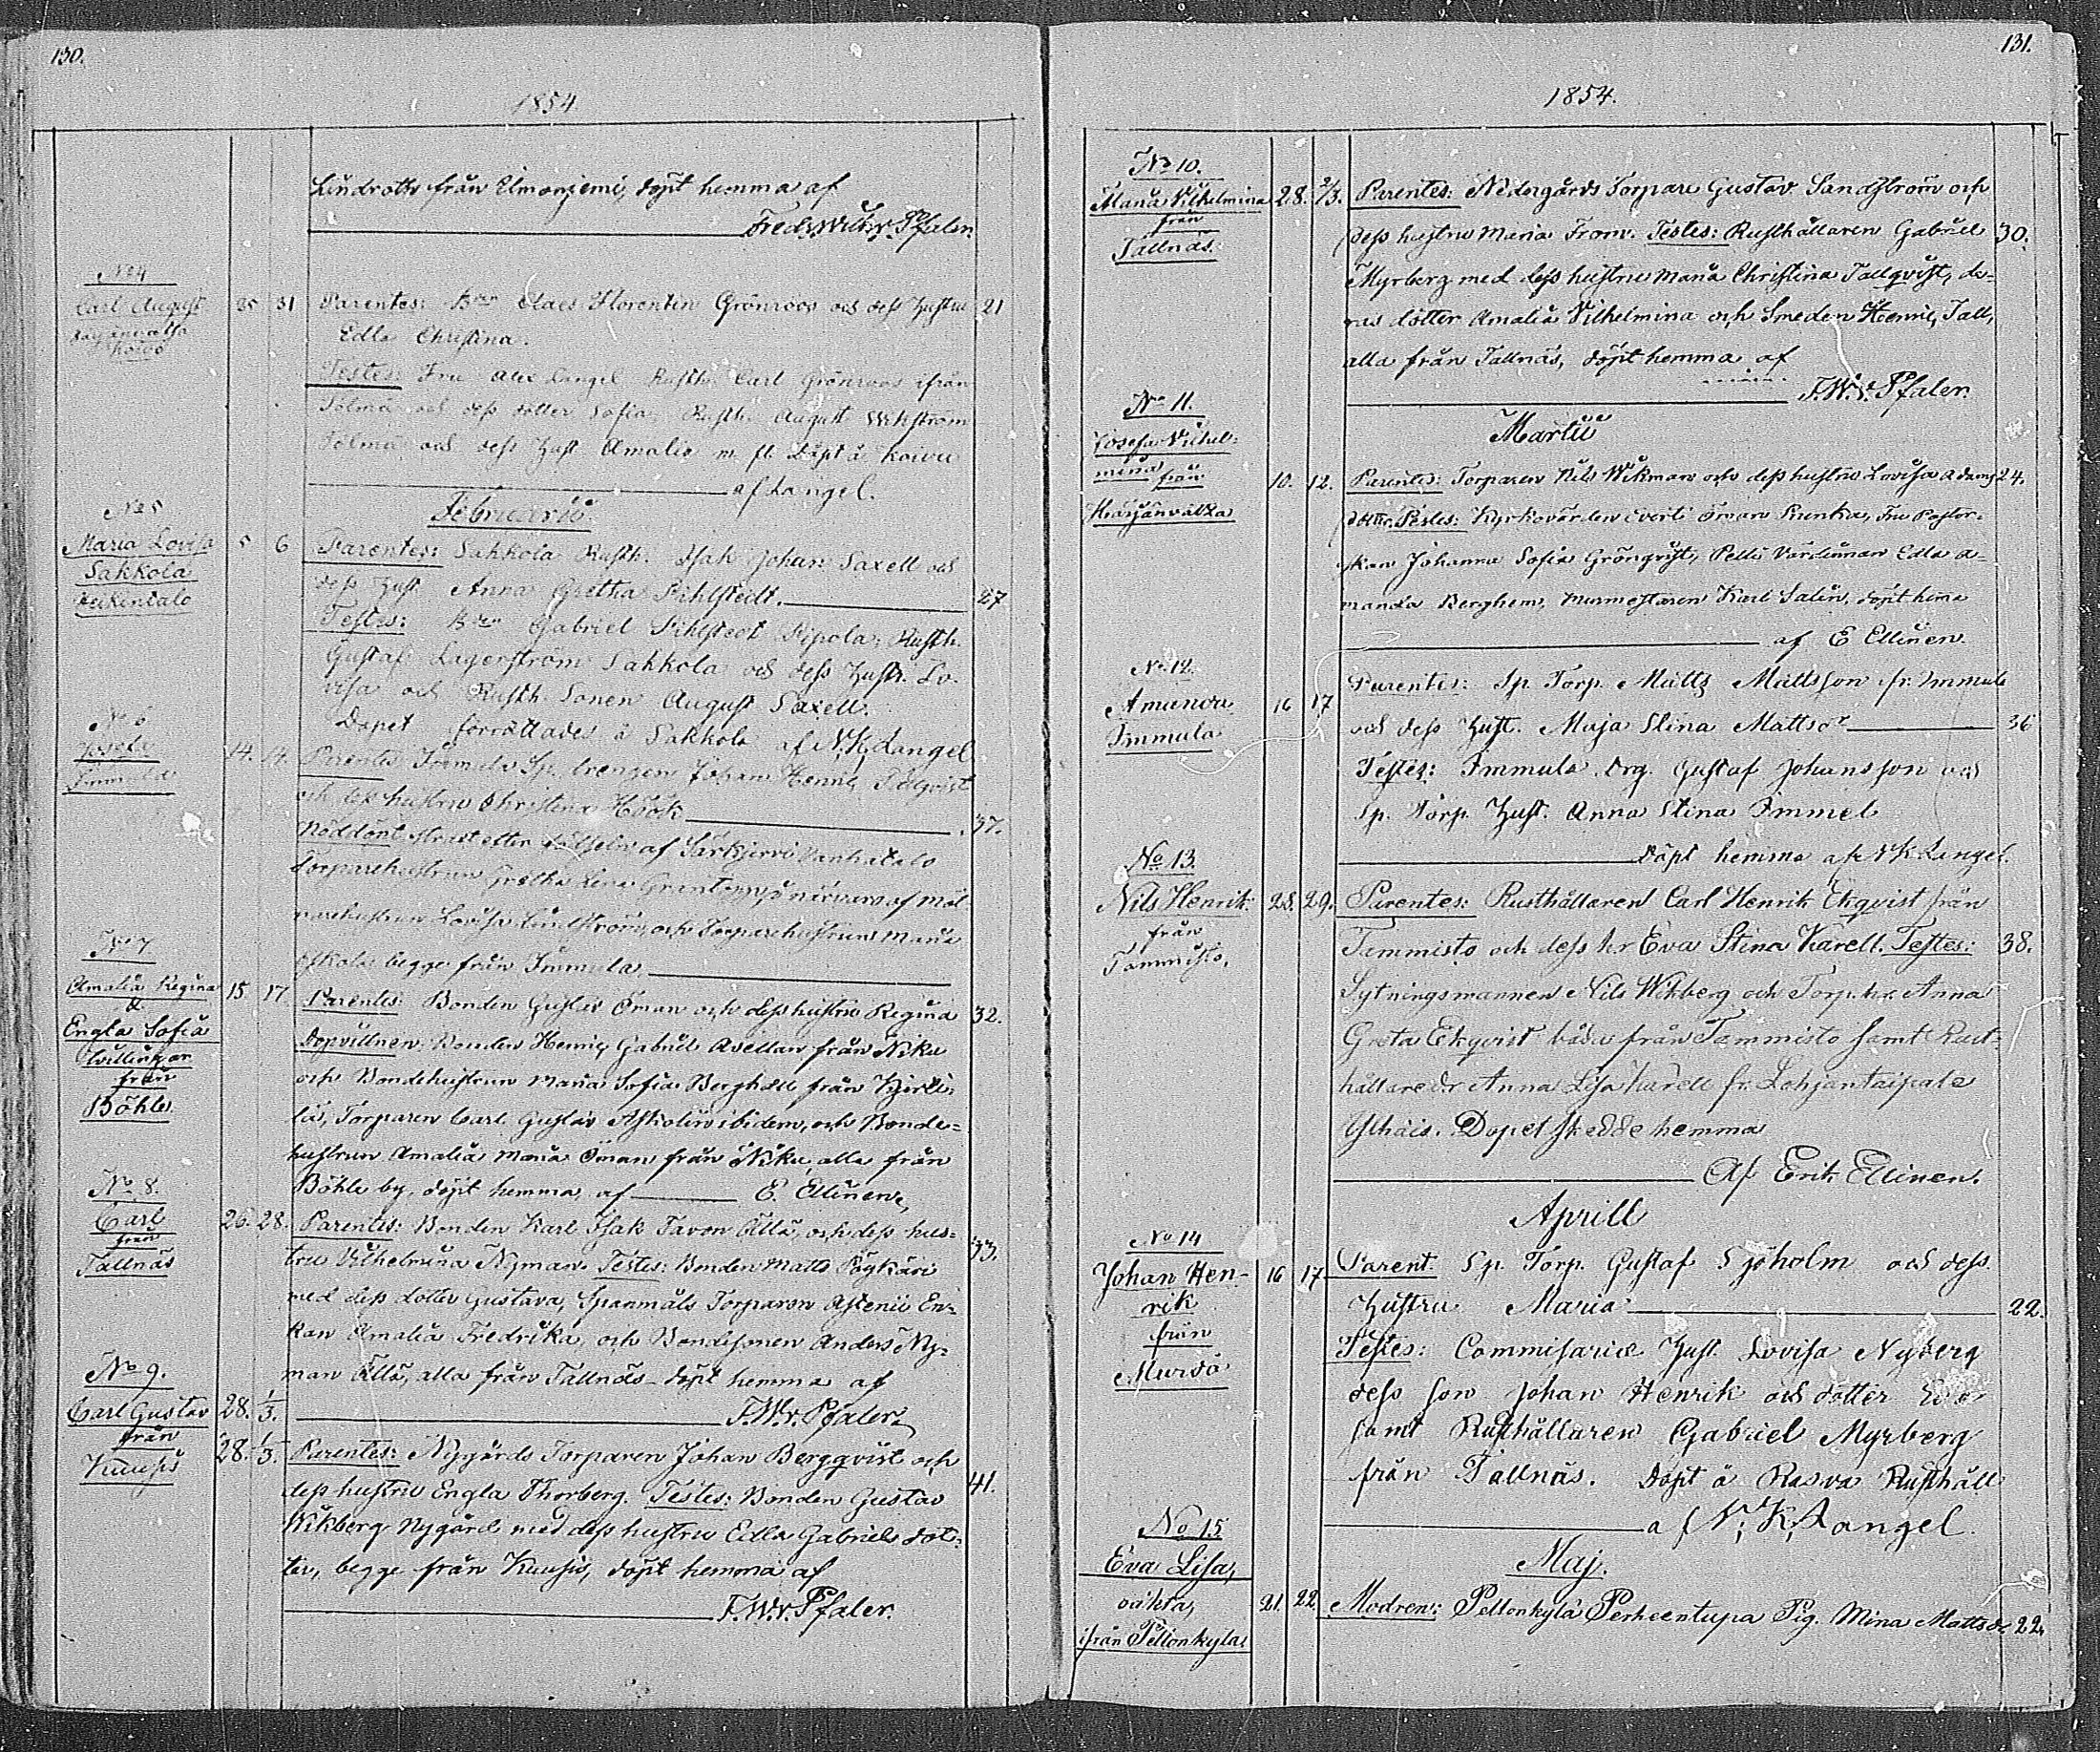 130.
1854
Lindroth från Elmonjemi, döpt hemma af
Fredr. Wilh. v. Pfaler.
No 4
Carl August
35 31 Parentes: Bdn Claes Florentin Grönroos och dess hustru 21
Edla Christina.
Testes: Fru Langel Rusth. Carl Grönroos ifrån
Tölmä och dess dotter Sofia, Rusth. August Wikström
Tölmä och dess hust Amalia m. fl. Döpt å Koivu
af Langel.
Februarii
No 5
Maria Lovisa
Sakkola
Heikintalo
5 6 Parentes: Sakkola Rusth. Isak Johan Saxell och
dess hust Anna Gretha Fihlstedt. 27
Testes: Bdn Gabriel Fihlstedt Pipola, Rusth.
Gustaf Lagerström Sakkola och dess hustr. Lo-
visa och Rusth. Sonen August Saxell.
Dopet förrättades å Sakkola af N. K. Langel
No 6
Immula
14. 14. Parentes Immula Sp. drengen Johan Henric Sälqvist
och dess hustru Christina Höök 37.
Nöddöpt straxt efter födseln af Särkjervi Vanhatalo
Torparehustrun Gretha Lena Grantenpå närvaro af Möl-
narehustrun Lovisa Lindström, och Torparehustrun Maria
Oskola begge från Immula
No 7
Amalia Regina
&
Engla Sofia
tvillingar
från
Böhle
15 17 Parentes: Bonden Gustav Öman och dess hustru Regina 32.
Dopvittnen: Bonden Henric Gabriel Avellan från Niku
och Bondehustrun Maria Sofia Berghäll från Kjerki-
lä, Torparen Carl Gustav Askolin ibidem, och Bonde-
hustrun Amalia Maria Öman från Niku, alla från
Böhle by, döpt hemma af E. Ellinen,
No 8.
Carl
från
Tallnäs
26. 28. Parentes: Bonden Karl Isak Tavon Ällä, och dess hus-
tru Vilhelmina Nyman. Testes: Bonden Matts Pajkäri 33.
med dess dotter Gustava, Spanmåls Torparen Astenii En-
kan Amalia Fredrika, och Bondesonen Anders Ny-
man Ällä, alla från Tallnäs döpt hemma af
F. W. v. Pfaler.
No 9.
Carl Gustav
från
Kuusis
28. 1/3.
28. 1/3. Parentes: Nygårds Torparen Johan Bergqvist och
dess hustru Engla Thorberg. Testes: Bonden Gustav 41.
Wikberg Nygård med dess hustru Edla Gabriels dot-
ter, begge från Kuusis, döpt hemma af
F. W. v. Pfaler.
131.
1854.
No 10.
Maria Vilhelmina
från
Tallnäs.
28. 2/3. Parentes: Nedergårds Torpare Gustav Sandström och
dess hustru Maria From. Testes: Rusthållaren Gabriel 30.
Myrberg med dess hustru Maria Christina Tallqvist, de-
ras dotter Amalia Vilhelmina och Smeden Henric Tall,
alla från Tallnäs, döpt hemma af
F. W. v. Pfaler.
Martii
No 11.
Josefa Vilhel-
mina från
Harjanvatsa
10. 12. Parentes: Torparen Nils Wikman och dess hustru Lovisa Adams 24.
dotter. Testes: Kyrkovärden Everti Öman Prunka, Fru Pastor-
skan Johanna Sofia Grönqvist, Pelli Värdinnan Edla A-
manda Berghem, Murmestaren Karl Salin, döpt hema
af E Ellinen.
No 12.
Amanda
Immula
16 17 Parentes: Sp. Torp. Matts Mattsson fr. Immula
och dess hust. Maja Stina Mattsdr 36
Testes: Immula Drg. Gustaf Johansson och
Sp. Torp. Hust. Anna Stina Immel
Döpt hemma af N K Langel.
No 13.
Nils Henrik
från
Tammisto.
28. 29. Parentes: Rusthållaren Carl Henrik Ekqvist från
Tammisto och dess hr Eva Stina Karell. Testes: 38.
Sytningsmannen Nils Wikberg och Torp. hr. Anna
Greta Ekqvist båda från Tammisto samt Rust-
hållare dr Anna Lisa Karell fr. Lohjantaipale
Ylhäis. Dopet skedde hemma
Af Erik Ellinen.
Aprill
No 14
Johan Hen-
rik
från
Murdo
16 17 Parent. Sp. Torp. Gustaf Sjöholm och dess
hustru Maria 22.
Testes: Commisarie Hust Lovisa Nyberg
dess son Johan Henrik och dotter Eva
samt Rusthållaren Gabriel Myrberg
från Tallnäs. Döpt å Rasva Rusthåll
af N. K. Langel.
Maj.
No 15
Eva Lisa,
oäkta,
ifrån Pellonkylä
21. 22. Modren: Pellonkylä Perheentupa Pig. Mina Mattsdr 22.